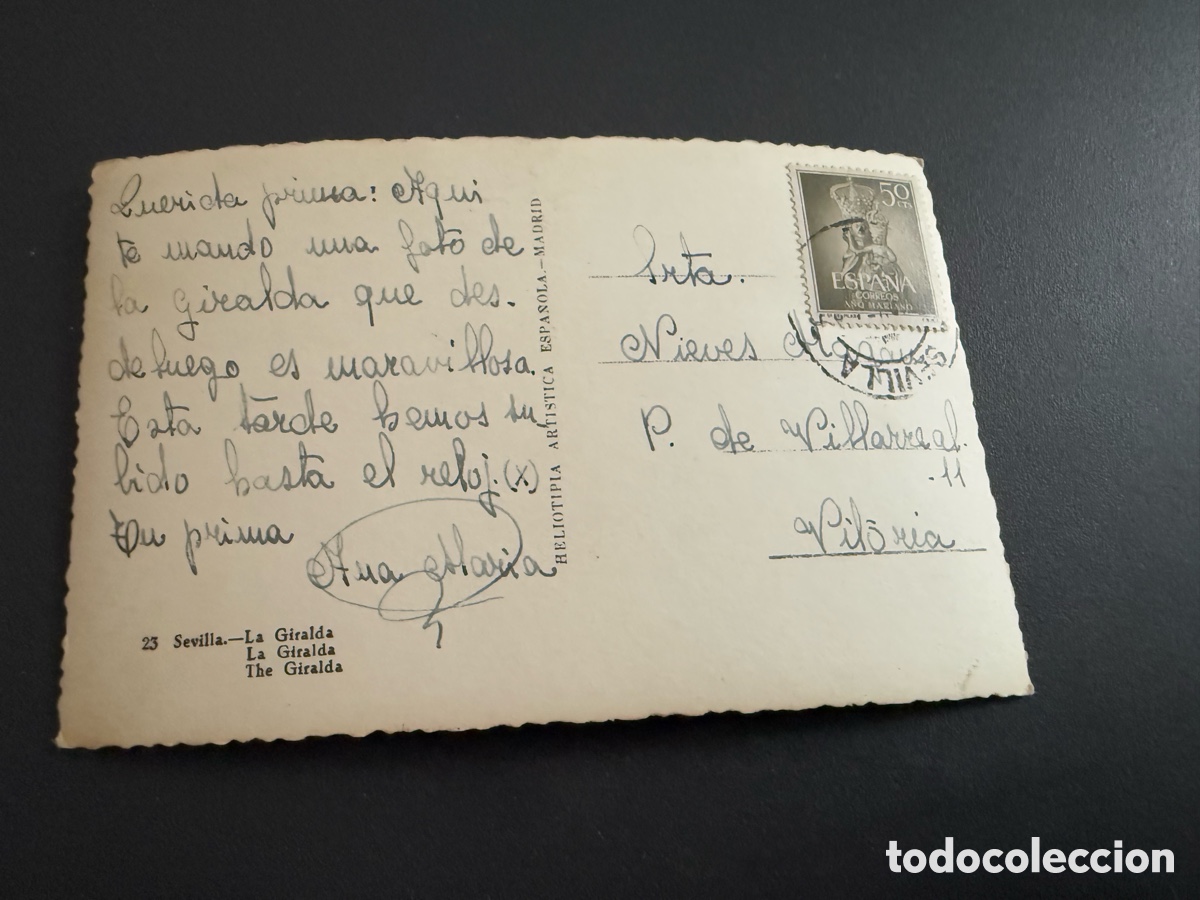 Querida prima: Aqui
te mando una foto de
la Giralda que des-
deluego es maravillosa.
Esta tarde hemos su
bido hasta el reloj. (x)
Tu prima
Ana Maria
23 Sevilla.—La Giralda
La Giralda
The Giralda
HELIOTIPIA ARTISTICA ESPAÑOLA.—MADRID
50 CTS
ESPAÑA
CORREOS
AÑO MARIANO
SEVILLA
Srta.
Nieves
P. de Villarreal.
-11
Vitoria
todocoleccion